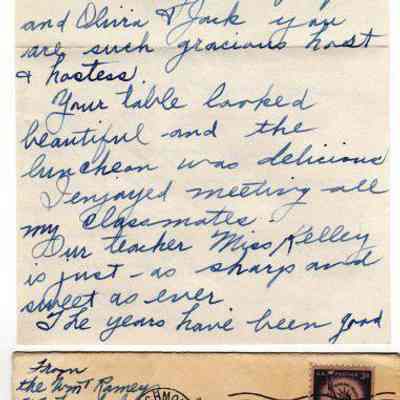 and Olivia & Jack you
are such gracious host
& hostess.
Your table looked
beautiful and the
luncheon was delicious
I enjoyed meeting all
my classmates.
Our teacher Miss Kelley
is just as sharp and
sweet as ever
The years have been good
From
the Wm Ramey